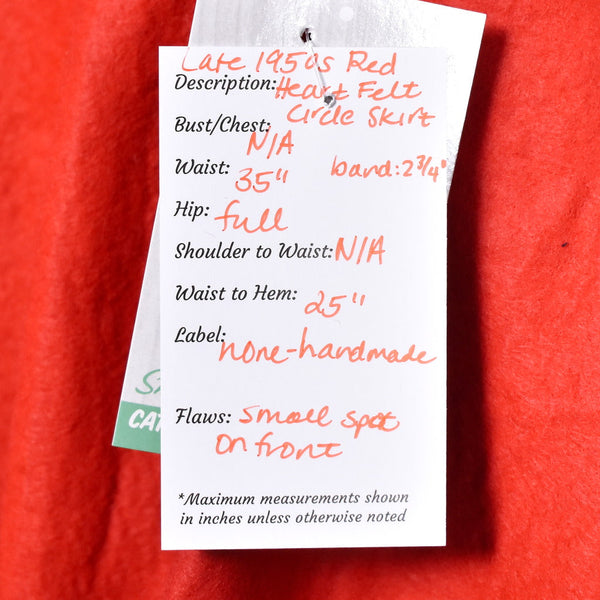 Late 1950s Red
Description: Heart Felt
Circle Skirt
Bust/Chest: N/A
Waist: 35" band: 2 3/4"
Hip: full
Shoulder to Waist: N/A
Waist to Hem: 25"
Label: none-handmade
Flaws: Small spot
on front
*Maximum measurements shown
in inches unless otherwise noted
CAT